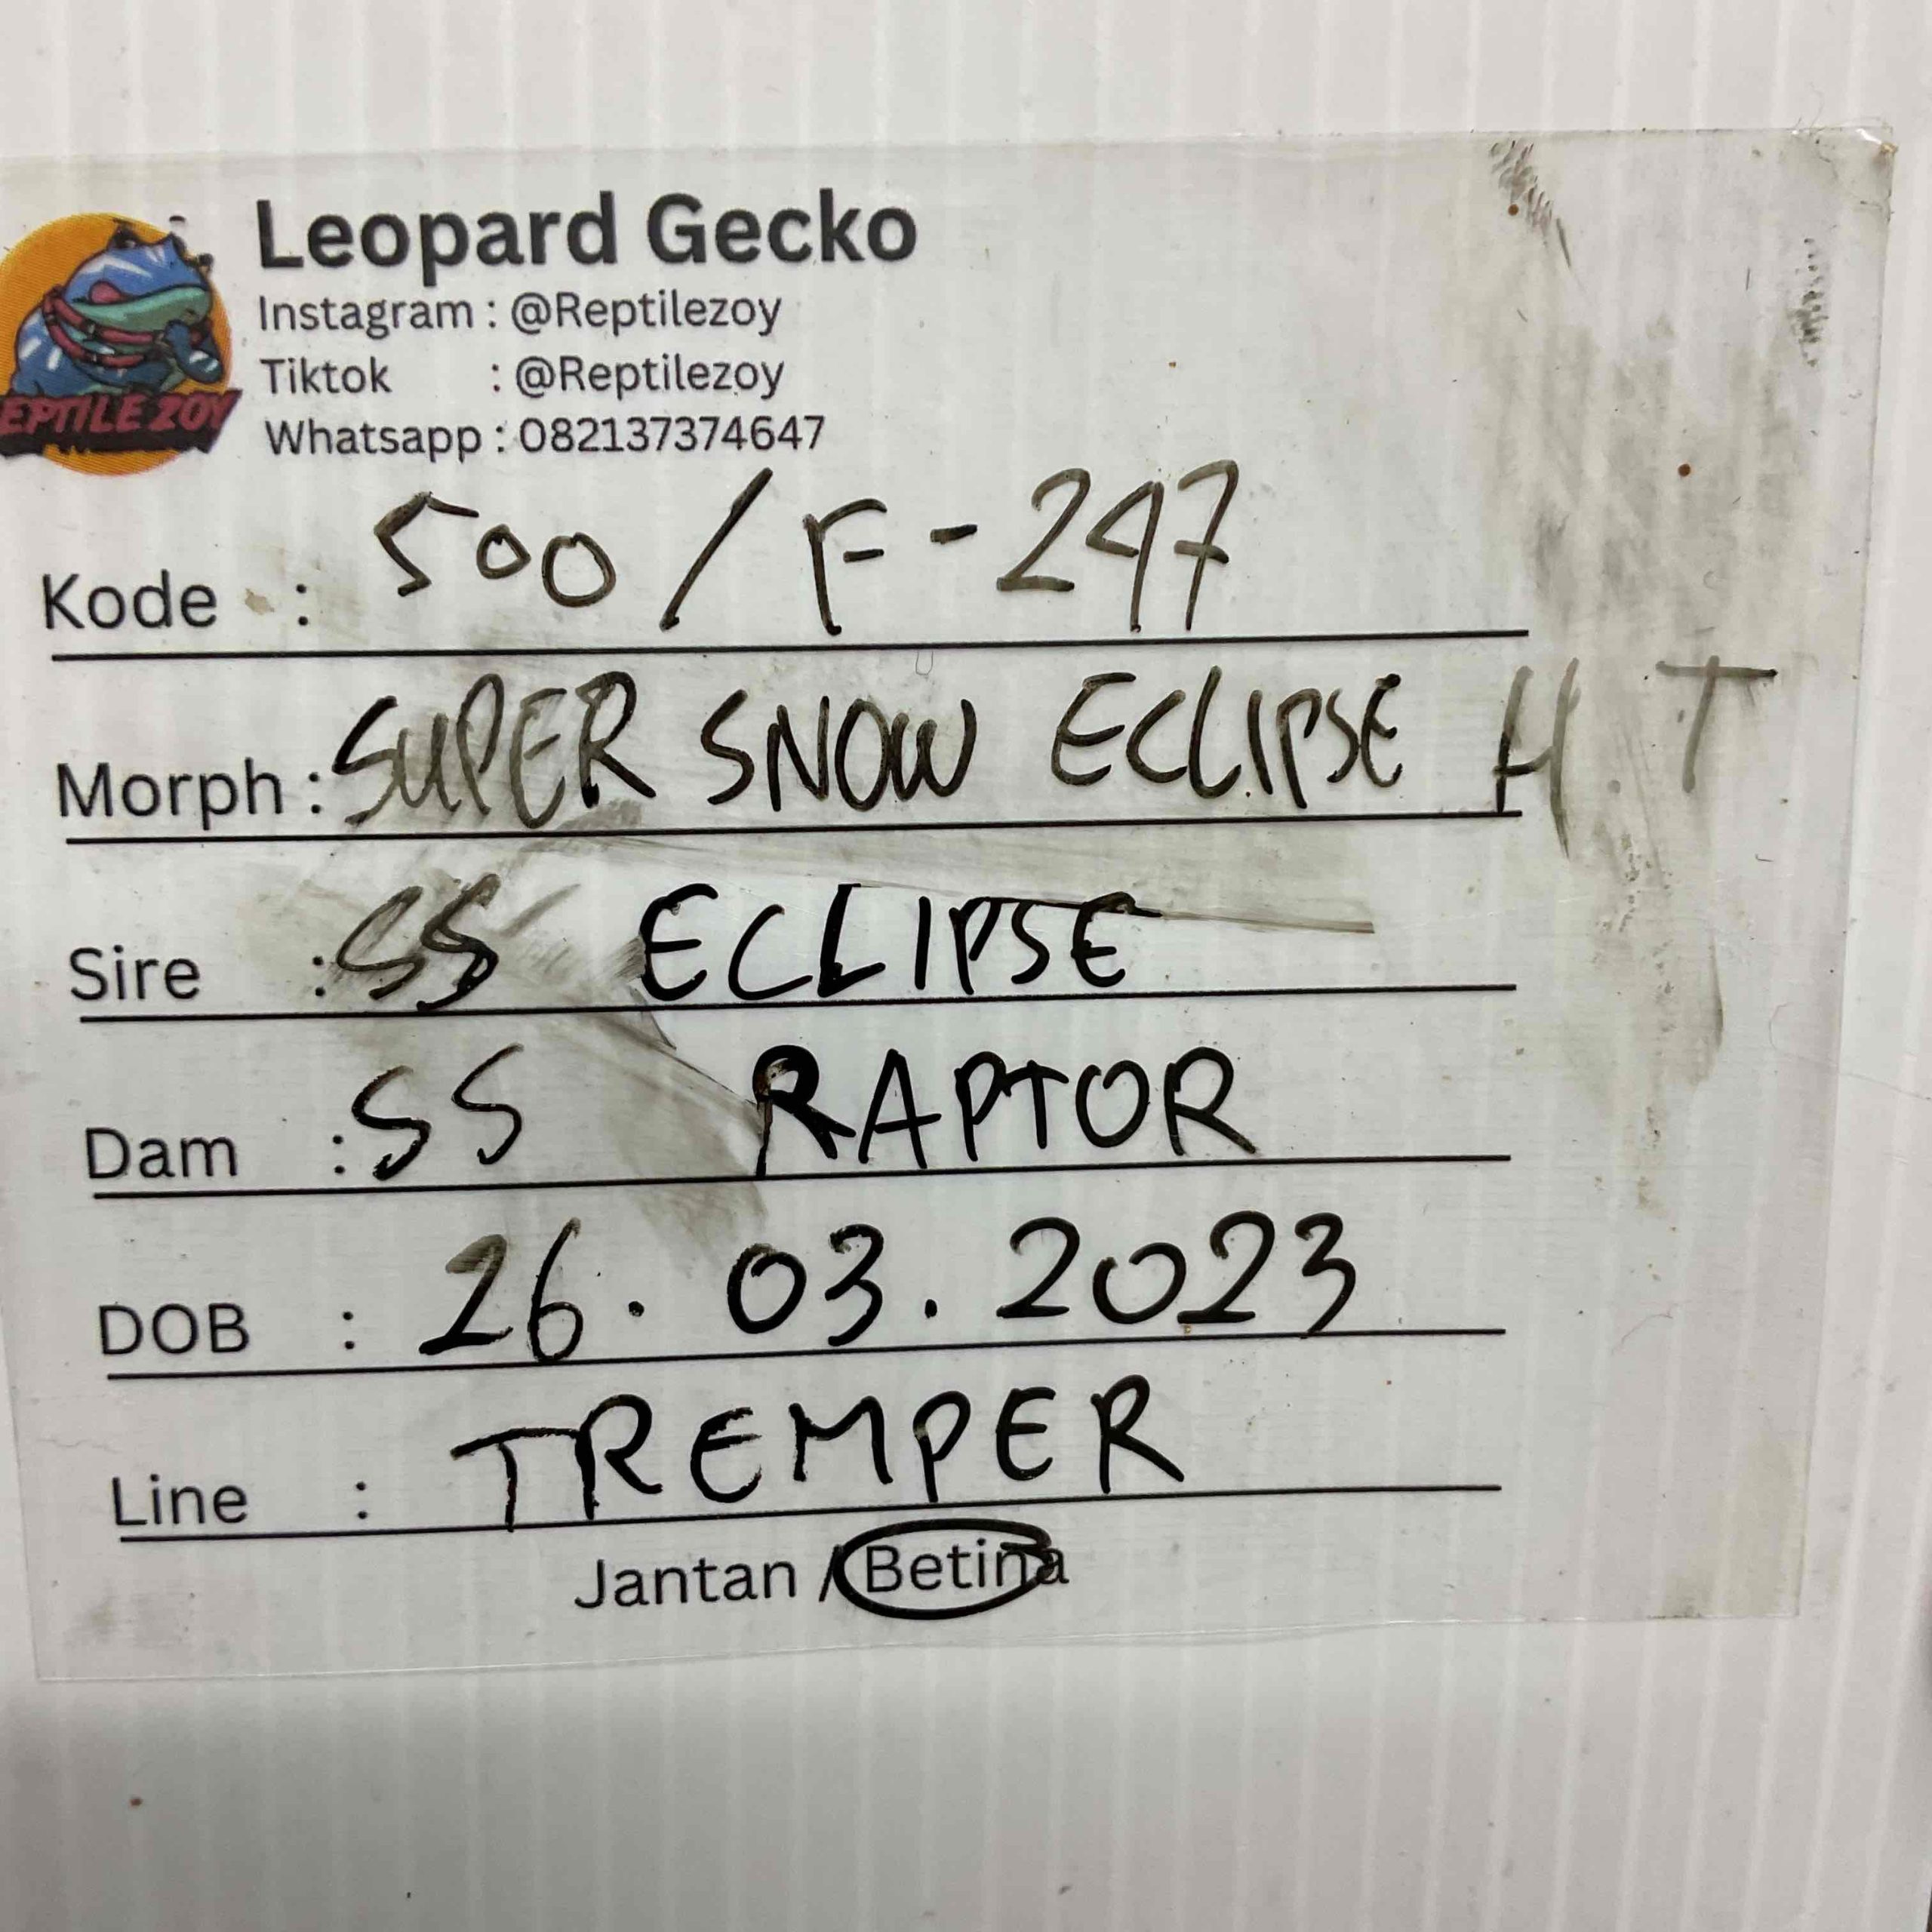 Leopard Gecko
Instagram : @Reptilezoy
Tiktok : @Reptilezoy
Whatsapp : 082137374647
EPTILE ZOY
Kode : 500 / F - 247
Morph : SUPER SNOW ECLIPSE H.T
Sire : SS ECLIPSE
Dam : SS RAPTOR
DOB : 26. 03. 2023
Line : TREMPER
Jantan / Betina